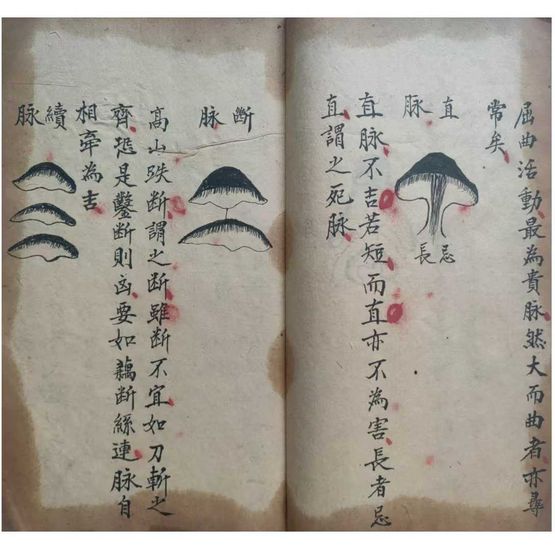 屈曲活動最為貴脉然大而曲者亦尋
常矣
直脉
忌長
直脉不吉若短而直亦不為害長者忌
直謂之死脉
断脉
高山跌断謂之断雖断不宜如刀斬之
齊恐是鑿断則凶要如藕断絲連脉自
相牽為吉
續脉